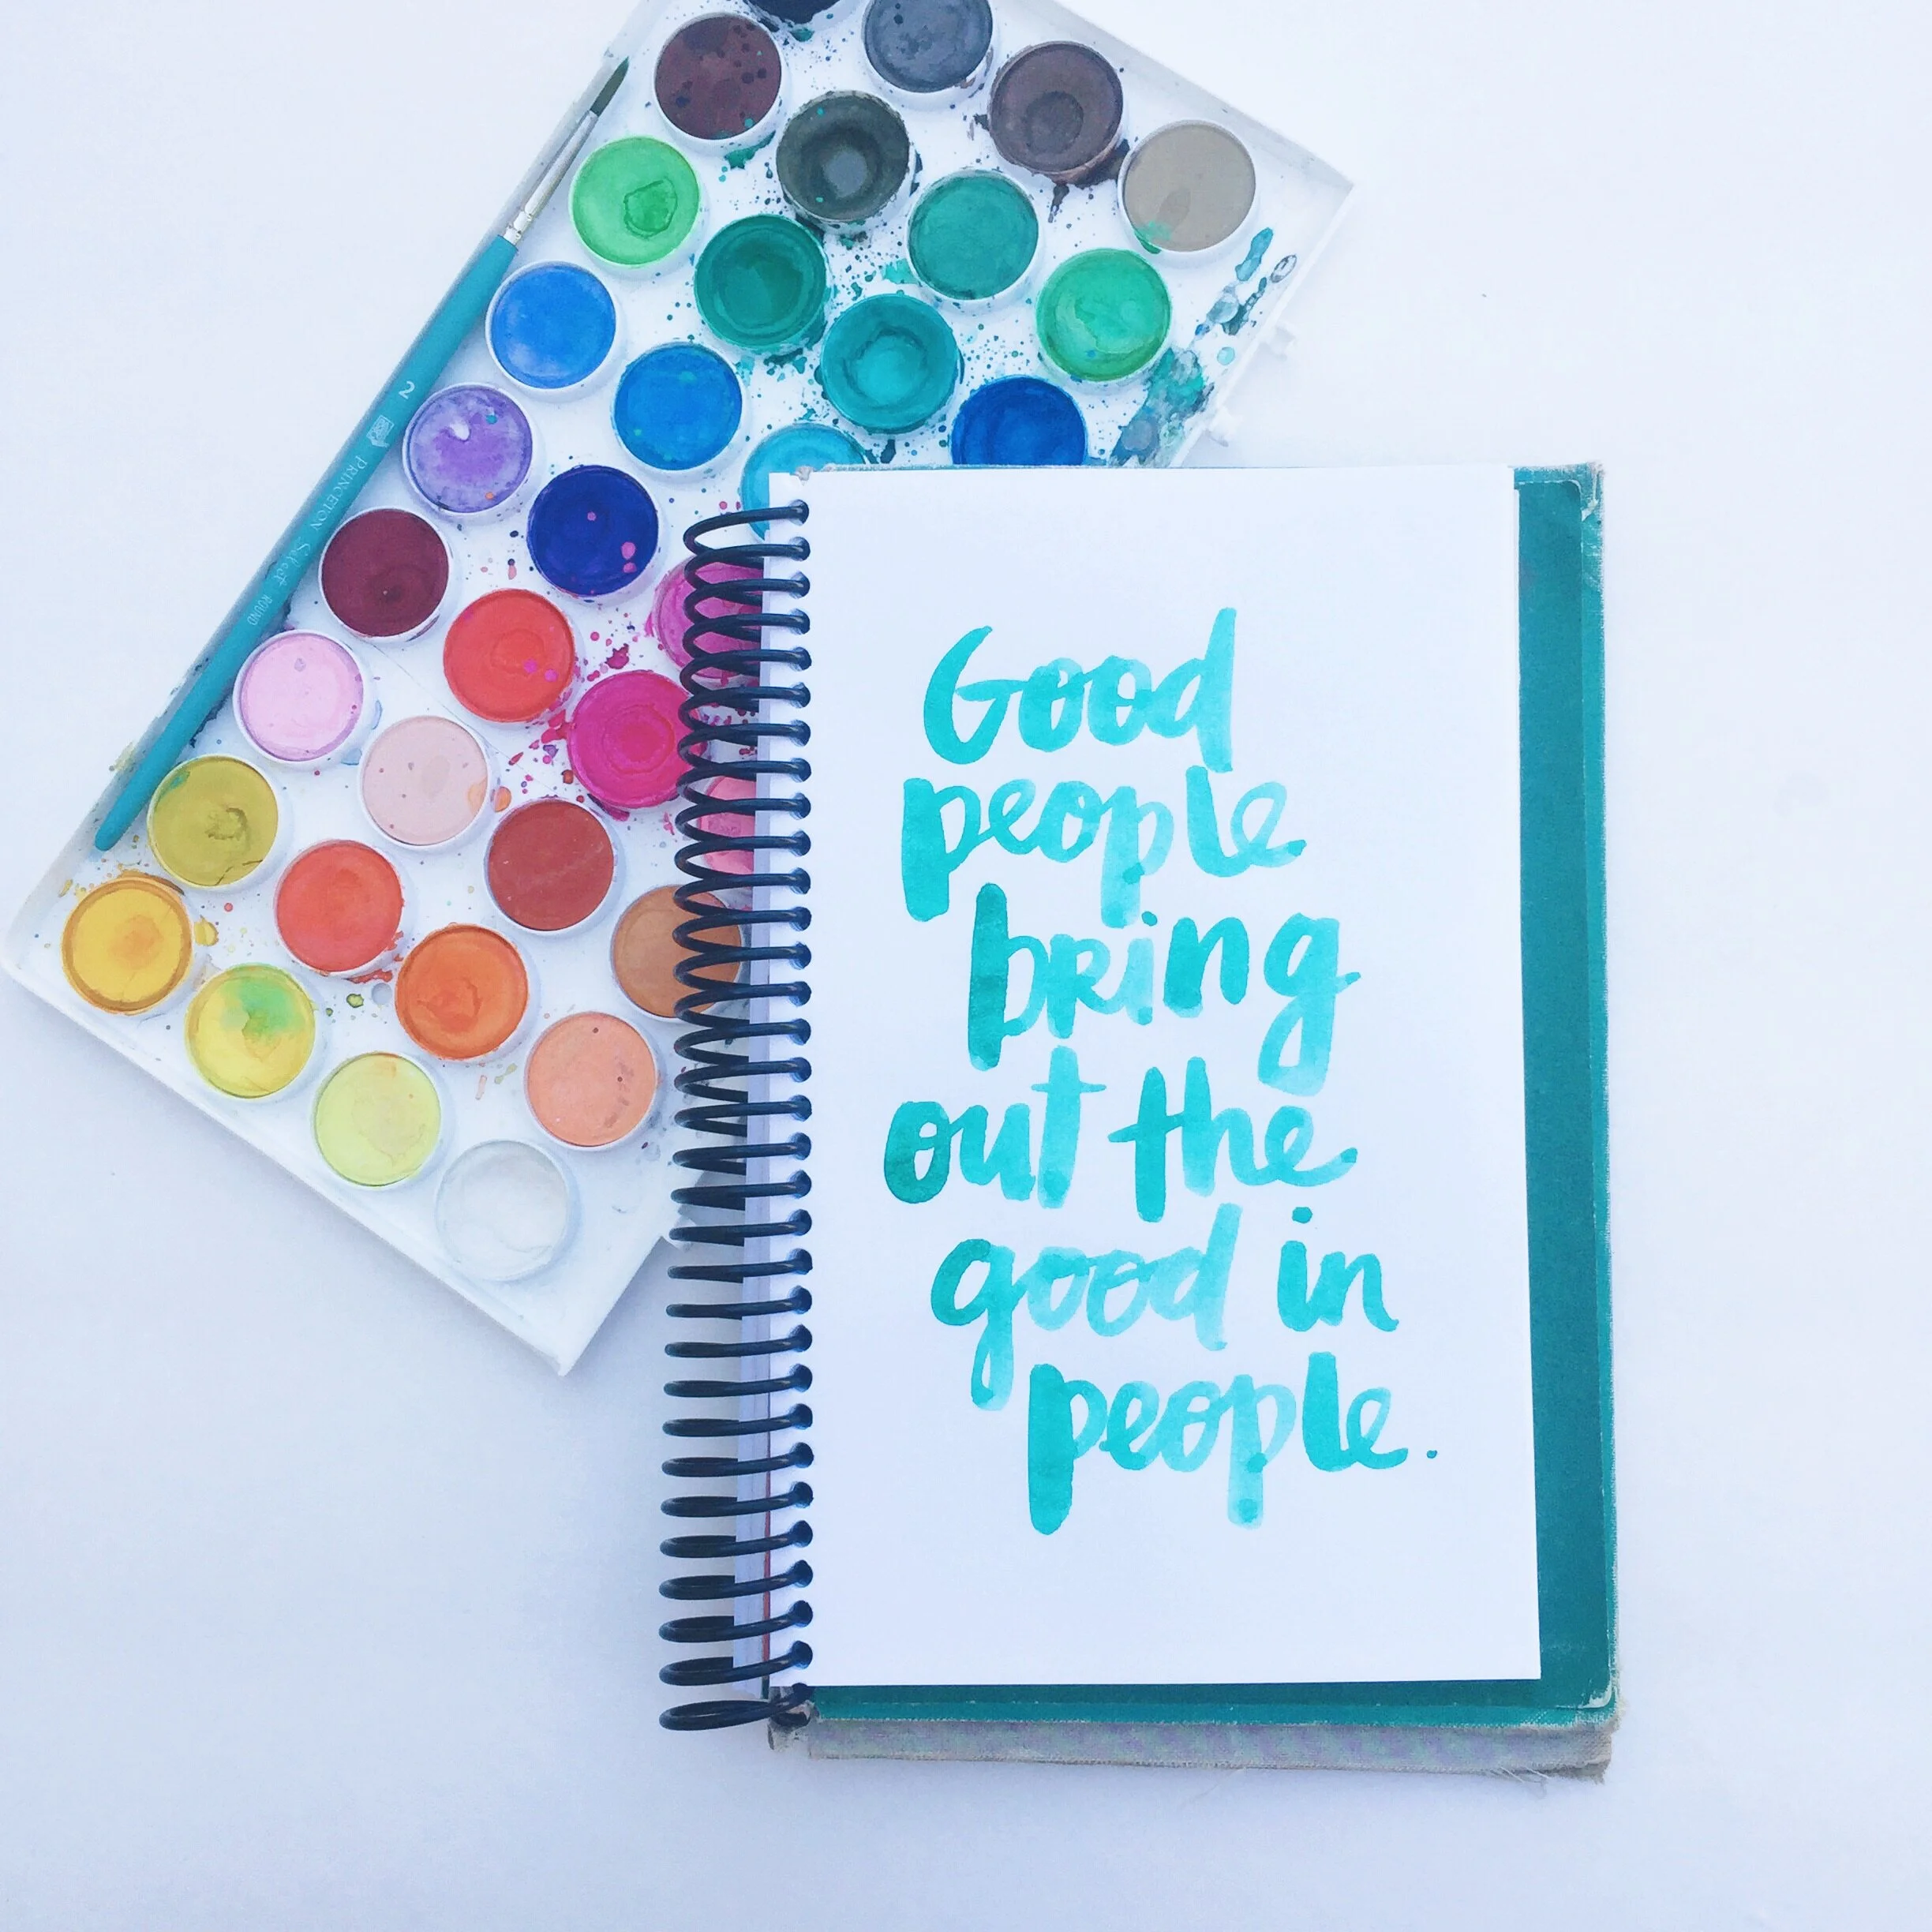 Good
people
bring
out the
good in
people.
2 PRINCETON Select ROUND